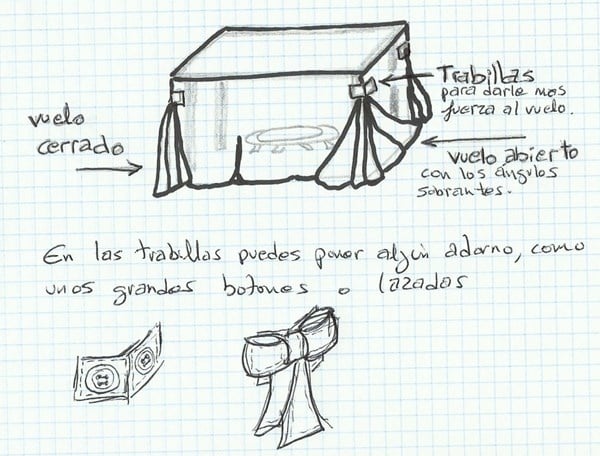 Trabillas
para darle mas
fuerza al vuelo.
vuelo
cerrado
vuelo abierto
con los ángulos
sobrantes.
En las trabillas puedes poner algún adorno, como
unos grandes botones o lazadas